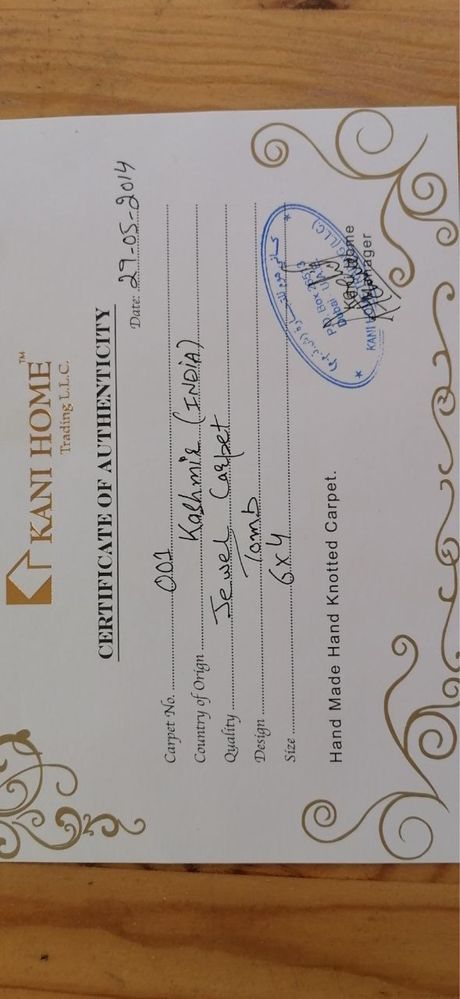 KANI HOME™
Trading L.L.C.
CERTIFICATE OF AUTHENTICITY
Date: 29-05-2014
Carpet No. 001
Country of Orign Kashmir (INDIA)
Quality Jewel Carpet
Design Tomb
Size 6x4
Hand Made Hand Knotted Carpet.
(LLC)
P.O. Box
Dubai U.A.E
Kani Home
Manager
KANI